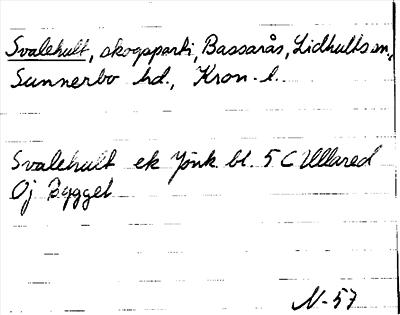 Svalehult, skogsparti, Bassarås, Lidhults sn,
Sunnerbo hd., Kron. l.
Svalehult ek Jönk. bl. 5 C Ullared
Oj Bygget
N-57